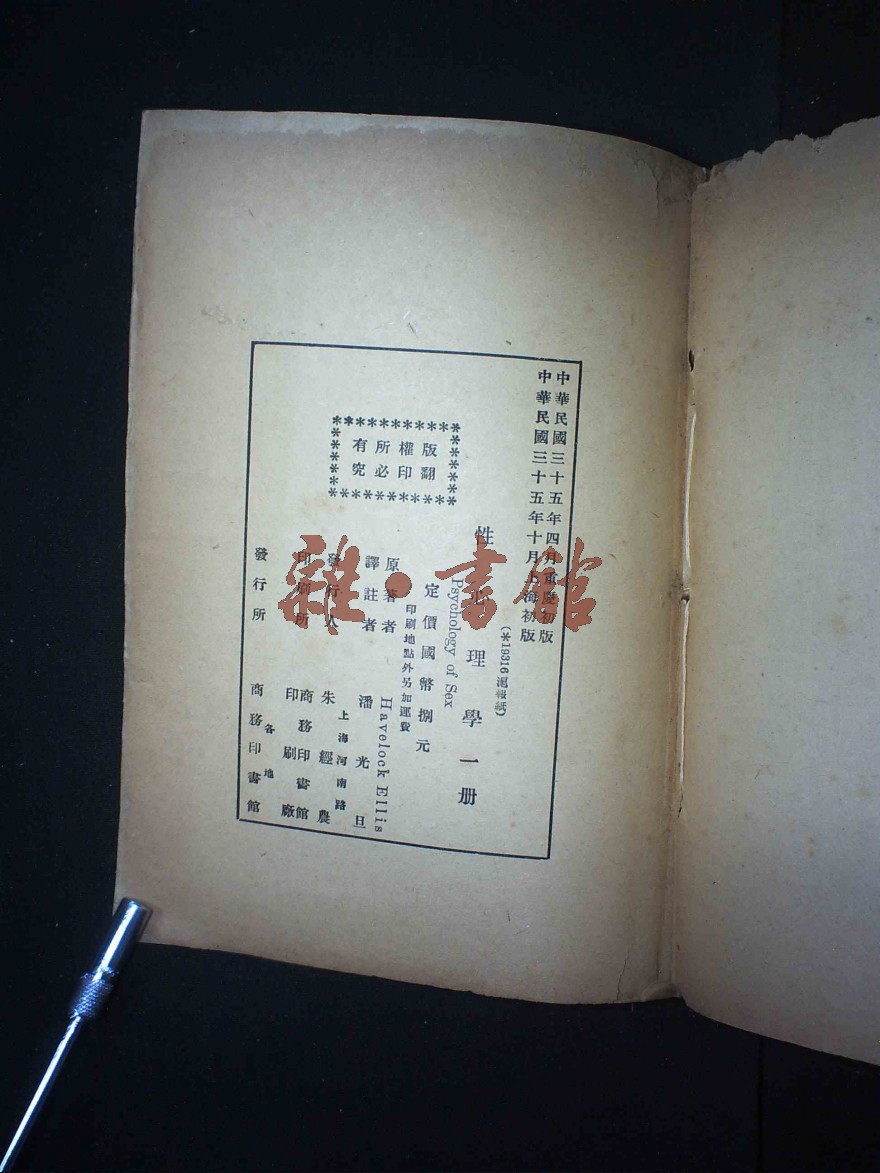 中華民國三十五年四月重慶初版
中華民國三十五年十月上海初版
(*19316滬報紙)
性心理學一册
Psychology of Sex
定價國幣捌元
印刷地點外另加運費
版權所有
翻印必究
原著者 Havelock Ellis
譯註者 潘光旦
發行人 朱經農
上海河南路
印刷所 商務印書館印刷廠
發行所 商務印書館
各地
雜·書館